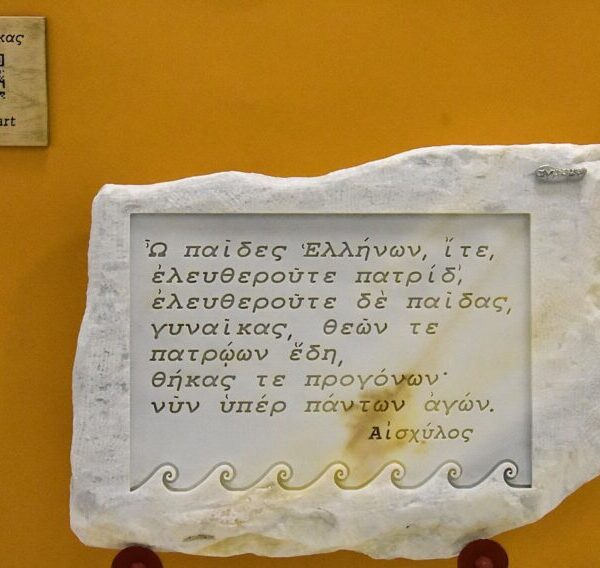 κας
art
Ὦ παῖδες Ἑλλήνων, ἴτε,
ἐλευθεροῦτε πατρίδ',
ἐλευθεροῦτε δὲ παῖδας,
γυναῖκας, θεῶν τε
πατρῴων ἕδη,
θήκας τε προγόνων·
νῦν ὑπέρ πάντων ἀγών.
Αἰσχύλος